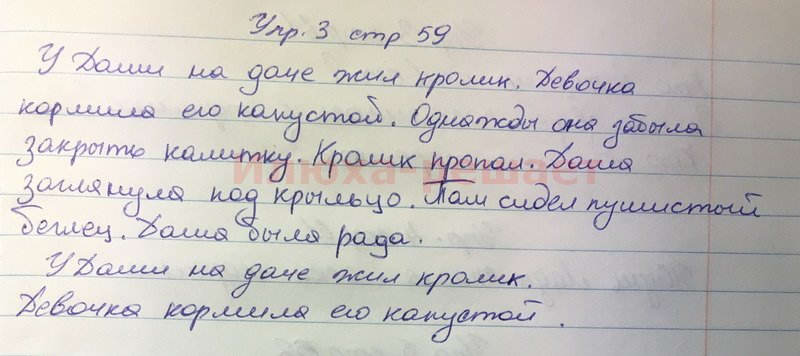 Упр. 3 стр 59
У Даши на даче жил кролик. Девочка
кормила его капустой. Однажды она забыла
закрыть калитку. Кролик пропал. Даша
илюха-решает
заглянула под крыльцо. Там сидел пушистый
беглец. Даша была рада.
У Даши на даче жил кролик.
Девочка кормила его капустой.